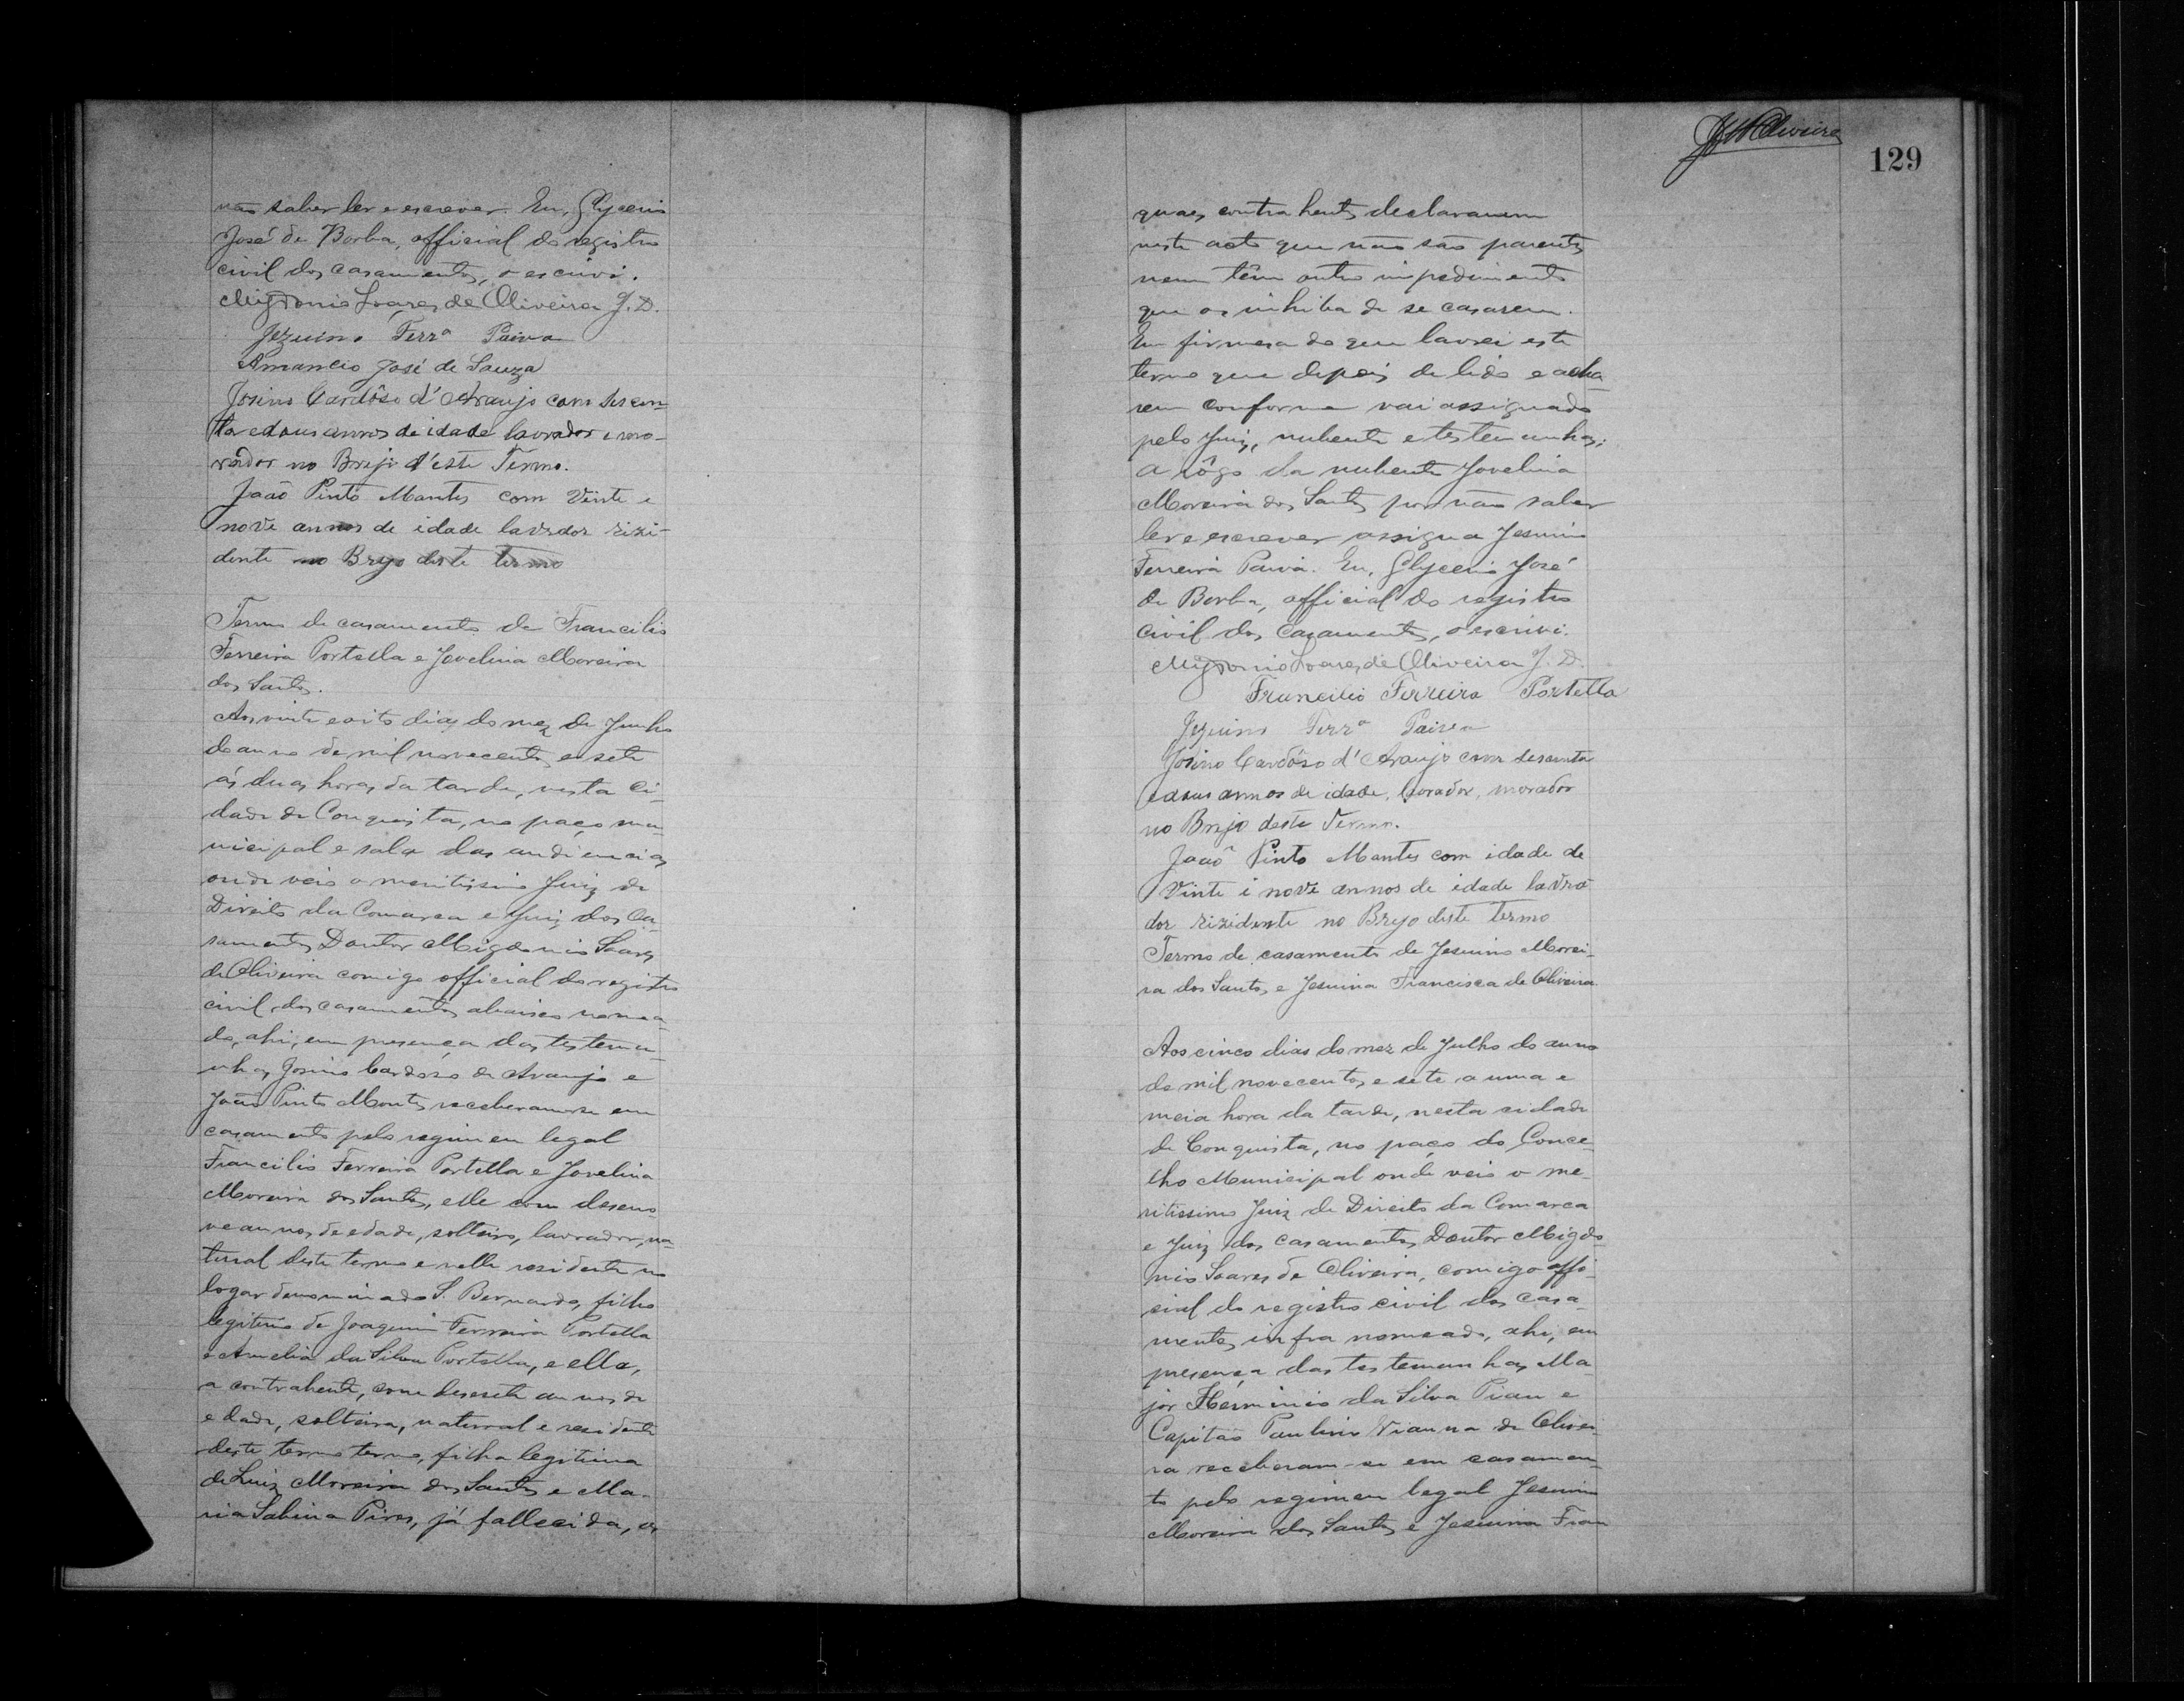 não saber ler e escrever. Eu, Glycerio
José de Borba, official do registro
civil dos casamentos, o escrevi.
Migdonio Soares de Oliveira J. D.
Jezuino Ferrª Paiva
Amancio José de Souza
Josino Cardôso d'Araujo com sescen-
ta e dous annos de idade lavrador e mo-
rador no Brejo d'este Termo.
João Pinto Montes com Vinte e
nove annos de idade lavrador rizi-
dente no Brejo deste termo
Termo de casamento de Francilio
Ferreira Portella e Jovelina Moreira
dos Santos.
Aos vinte e oito dias do mez de Junho
do anno de mil novecentos e sete
ás duas horas da tarde, nesta Ci-
dade de Conquista, no paço mu-
nicipal e sala das audiencias
onde veio o meritissimo Juiz de
Direito da Comarca e Juiz dos Ca-
samentos Doutor Migdonio Soares
de Oliveira comigo official do registro
civil dos casamentos abaixo nomea-
do, ahi, em presença das testemu-
nhas Josino Cardoso de Araujo e
João Pinto Montes receberam-se em
casamento pelo regimen legal
Francilio Ferreira Portella e Jovelina
Moreira dos Santos, elle com deseno-
ve annos de edade, solteiro, lavrador, na-
tural deste termo e nelle residente no
logar denominado S. Bernardo, filho
legitimo de Joaquim Ferreira Portella
e Amelia da Silva Portella, e ella,
a contrahente, com desesete annos de
edade, solteira, natural e residente
deste termo termo, filha legitima
de Luiz Moreira dos Santos e Ma-
ria Sabina Pires, já fallecida, os
129
quaes contrahentes declararam
neste acto que não são parentes
nem têm outro impedimento
que os inhiba de se casarem.
Em firmesa do que lavrei este
termo que depois de lido e acha-
rem conforme vai assignado
pelo Juiz, nubente e testemunhas;
a rôgo da nubente Jovelina
Moreira dos Santos por não saber
ler e escrever assigna Jesuino
Ferreira Paiva. Eu, Glycerio José
de Borba, official do registro
civil dos casamentos, o escrevi.
Migdonio Soares de Oliveira J. D.
Francilio Ferreira Portella
Jezuino Ferrª Paiva
Josino Cardôso d'Araujo com sescenta
e dous annos de idade, lavrador, morador
no Brejo deste Termo.
João Pinto Montes com idade de
Vinte i nove annos de idade lavra-
dor rizidente no Brejo deste termo
Termo de casamento de Jesuino Morei-
ra dos Santos e Jesuina Francisca de Oliveira.
Aos cinco dias do mez de Julho do anno
de mil novecentos e sete a uma e
meia hora da tarde, nesta cidade
de Conquista, no paço do Conce-
lho Municipal onde veio o me-
ritissimo Juiz de Direito da Comarca
e Juiz dos casamentos Doutor Migdo-
nio Soares de Oliveira, comigo offi-
cial do registro civil dos casa-
mentos infra nomeado, ahi, em
presença das testemunhas Ma-
jor Herminio da Silva Piau e
Capitão Paulino Vianna de Olivei-
ra receberam-se em casamen-
to pelo regimen legal Jesuino
Moreira dos Santos e Jesuina Fran